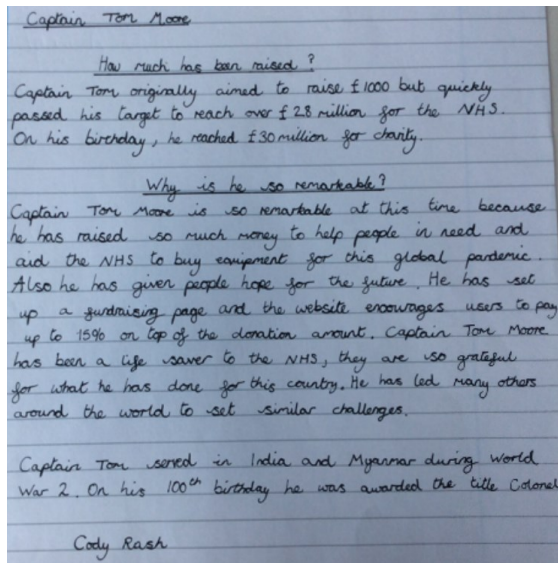 Captain Tom Moore
How much has been raised?
Captain Tom originally aimed to raise £1000 but quickly
passed his target to reach over £28 million for the NHS.
On his birthday, he reached £30 million for charity.
Why is he so remarkable?
Captain Tom Moore is so remarkable at this time because
he has raised so much money to help people in need and
aid the NHS to buy equipment for this global pandemic.
Also he has given people hope for the future. He has set
up a fundraising page and the website encourages users to pay
up to 15% on top of the donation amount. Captain Tom Moore
has been a life saver to the NHS, they are so grateful
for what he has done for this country. He has led many others
around the world to set similar challenges.
Captain Tom served in India and Myanmar during World
War 2. On his 100th birthday he was awarded the title Colonel
Cody Rash